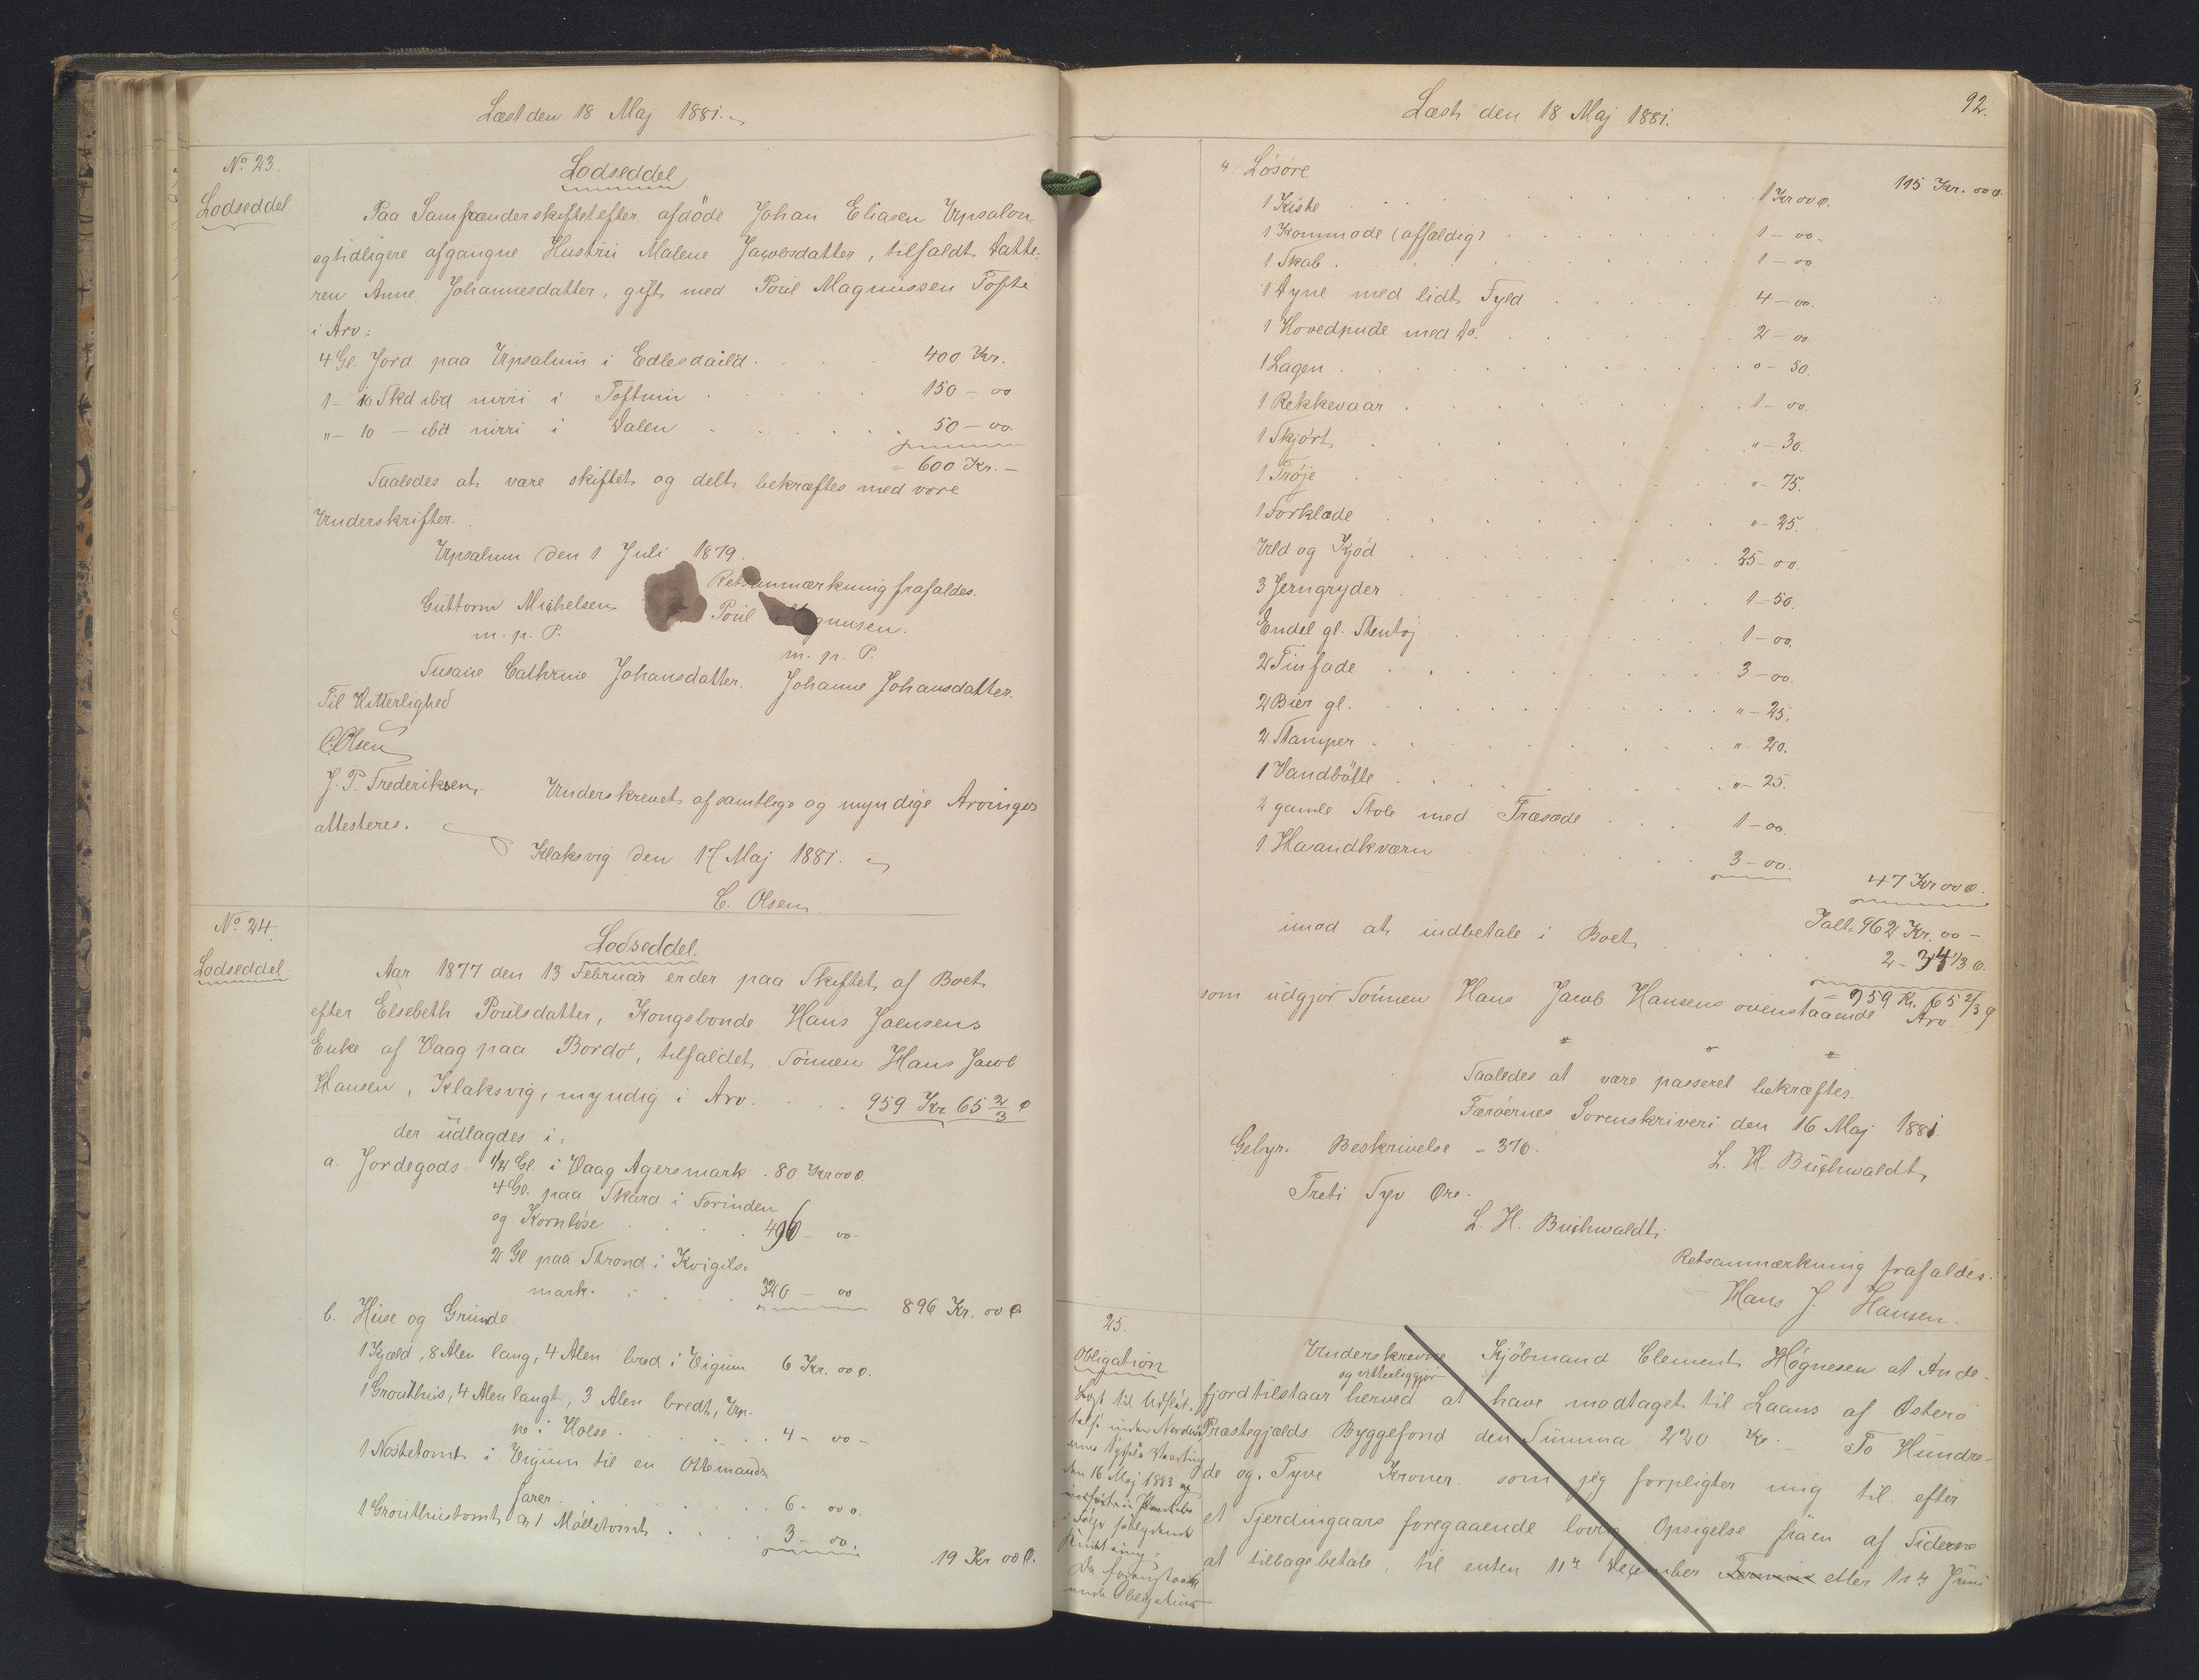 Læst den 18 Maj 1881.
No 23.
Lodseddel
Lodseddel
Paa Samfrænderskiftet efter afdöde Johan Eliasen Upsalon
og tidligere afgangne Hustru Malene Jacobsdatter, tilfaldt Datte-
ren Anne Johannesdatter, gift med Poul Magnussen Tofte
i Arv:
4 Gl. Jord paa Upsalum i Edlesdaild . . . 400 Kr.
1 - 10 Skd ibd nirri i Toftum . . . 150 - 00
" - 10 - ibd nirri i Dalen . . . 50 - 00.
= 600 Kr. -
Saaledes at være skiftet og delt bekræftes med vore
Underskrifter.
Upsalum den 1 Juli 1879.
Retsanmærkning frafaldes.
Guttorm Michelsen Poul Magnusen.
m. p. P. m. p. P.
Susanne Cathrine Johansdatter. Johanne Johansdatter.
Til Vitterlighed
C. Olsen
J. P. Frederiksen, Underskrevet af samtlige og myndige Arvinger
attesteres.
Klaksvig den 17 Maj 1881.
C. Olsen.
No 24.
Lodseddel
Lodseddel.
Aar 1877 den 13 Februar er der paa Skiftet af Boet
efter Elsebeth Poulsdatter, Kongsbonde Hans Joensens
Enke af Vaag paa Bordö, tilfaldet Sönnen Hans Jacob
Hansen, Klaksvig, myndig i Arv . . . 959 Kr. 65 2/3 Ø
der udlagdes i:
a. Jordegods: 1/2 Gl. i Vaag Agersmark . 80 Kr 00 Ø.
4 Gl. paa Skard i Forinden
og Kornlöse . . . 496 - 00 -
2 Gl paa Strond i Kvigils-
mark. . . . 320 - 00
896 Kr. 00 Ø
b. Huse og Grunde
1 Kjæld, 8 Alen lang, 4 Alen bred i Vigum 6 Kr. 00 Ø.
1 Grouthus, 4 Alen langt, 3 Alen bredt, Up-
pe i Holse . . . 4 - 00 -
1 Nöstetomt i Vigum til en Ottemands
farer . . . 6 - 00 Ø.
1 Grouthustomt og 1 Mölletomt . . . 3 - 00.
19 Kr 00 Ø.
Læst den 18 Maj 1881.
92.
4 Lösöre
115 Kr. 00 Ø
1 Kiste . . . 1 Kr 00 Ø.
1 Kommode (affældig) . . . 1 - 00 -
1 Skab . . . 1 - 00
1 Dyne med lidt Fyld . . . 4 - 00.
1 Hovedpude med Do. . . . 2 - 00
1 Lagen . . . 0 - 50.
1 Rekkevaar . . . 1 - 00
1 Skjört . . . " - 30.
1 Tröje . . . " - 75.
1 Forklæde . . . " - 25.
Uld og Kjöd . . . 25 - 00.
3 Jerngryder . . . 1 - 50.
Endel gl. Stentöj . . . 1 - 00.
2 Tinfade . . . 3 - 00.
2 Bier gl. . . . " - 25.
2 Stamper . . . " - 20.
1 Vandbötte . . . " - 25.
2 gamle Stole med Træsæde . . . 1 - 00.
1 Haandkværn . . . 3 - 00.
47 Kr 00 Ø.
Ialt = 962 Kr. 00 -
imod at indbetale i Boet . . . 2 - 34 1/3 Ø.
= 959 Kr. 65 2/3 Ø
som udgjör Sönnen Hans Jacob Hansens ovenstaaende Arv.
" " "
Saaledes at være passeret bekræftes.
Færöernes Sorenskriveri den 16 Maj 1881.
Gebyr. Beskrivelse = 37Ø. L. H. Buchwaldt,
Treti Syv Øre.
L. H. Buchwaldt,
Retsanmærkning frafaldes.
Hans J. Hansen.
25.
Obligation
Underskrevne Kjöbmand Clement Högnesen at Ande-
og vitterliggjör
fjord tilstaar herved at have modtaget til Laans af Österö
Præstegjælds Byggefond den Summa 220 Kr. - To Hundre-
de og Tyve Kroner som jeg forpligter mig til efter
et Fjerdingaars foregaaende lovlig Opsigelse fra en af Siderne
at tilbagebetale, til enten 11te December Termin eller 11te Juni
Lagt til Udslet-
telse inden Norderö
ernes Syssels Værting
den 16 Maj 1883